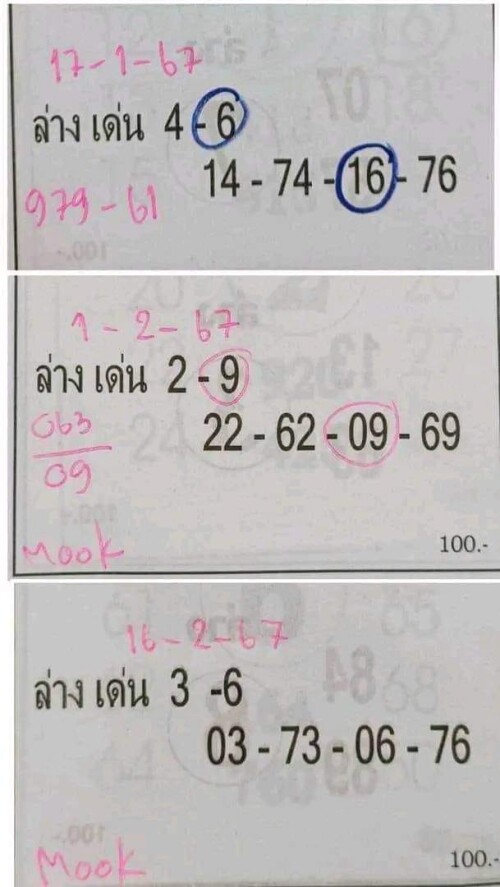 17-1-67
ล่าง เด่น 4 - 6
14 - 74 - 16 - 76
979-61
1-2-67
ล่าง เด่น 2 - 9
22 - 62 - 09 - 69
063
09
100.-
Mook
16-2-67
ล่าง เด่น 3 -6
03 - 73 - 06 - 76
100.-
Mook